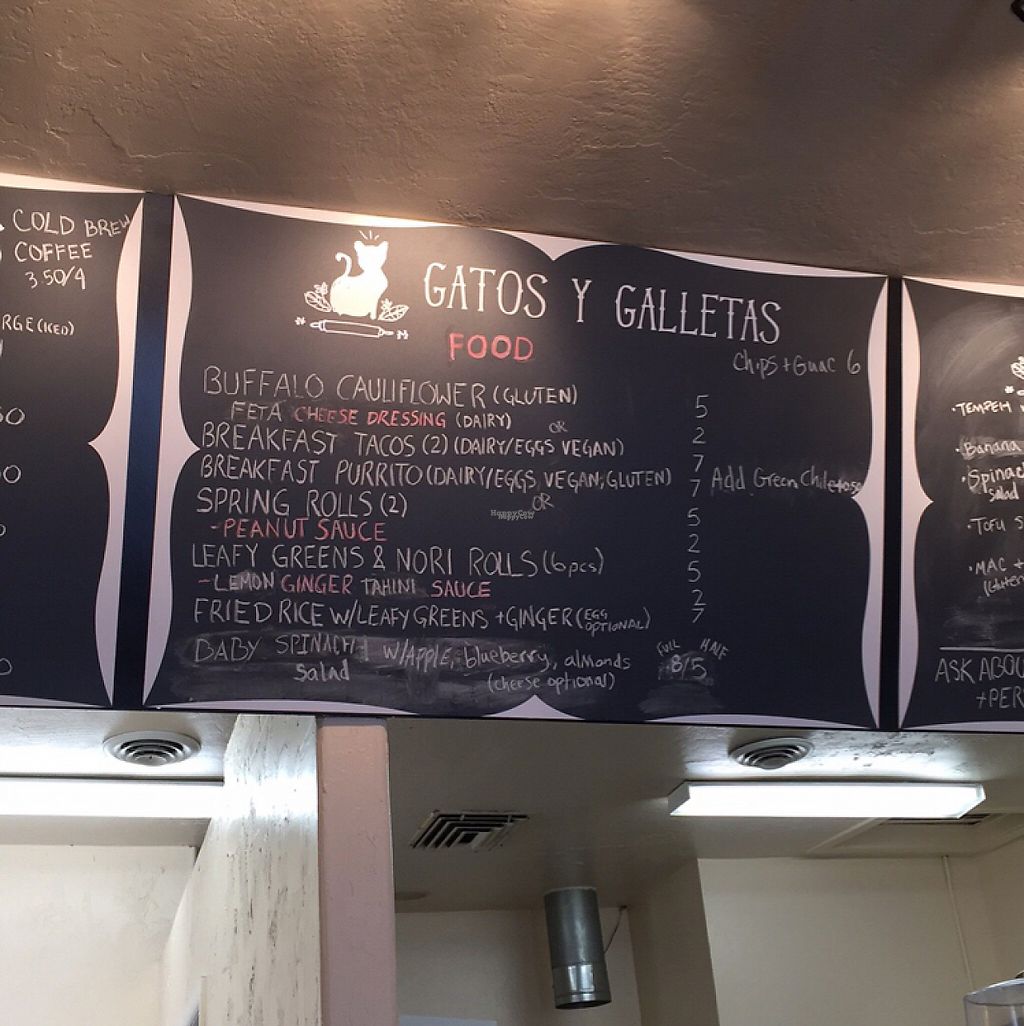 COLD BREW
COFFEE
3.50/4
RGE (ICED)
GATOS Y GALLETAS
FOOD
Chips + Guac 6
BUFFALO CAULIFLOWER (GLUTEN) 5
FETA CHEESE DRESSING (DAIRY) 2
OR
BREAKFAST TACOS (2) (DAIRY/EGGS VEGAN) 7
BREAKFAST PURRITO (DAIRY/EGGS, VEGAN, GLUTEN) 7 Add Green Chile
OR
SPRING ROLLS (2) 5
- PEANUT SAUCE 2
LEAFY GREENS & NORI ROLLS (6 pcs) 5
- LEMON GINGER TAHINI SAUCE 2
FRIED RICE W/LEAFY GREENS + GINGER (EGG OPTIONAL) 7
FULL HALF
BABY SPINACH W/APPLE, blueberry, almonds 8/5
Salad (cheese optional)
• TEMPEH
• Banana
• Spinach
Salad
• TOFU S
• MAC +
ASK ABOU
+ PER
HappyCow